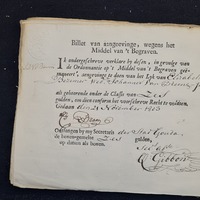 Billet van aangeevinge, wegens het
Middel van 't Begraven.
Ik ondergeschreve verklare by desen, in gevolge van
de Ordonnantie op 't Middel van 't Begraven ge-
emaneert, aangevinge te doen van het Lyk van Elisabeth
als gehorende onder de Classis van Zes
gulden, om daar conform het voorschreve Recht te voldoen.
Gedaan den 24 November 1803
Ontfangen by my Secretaris der Stad Gouda
de bovengemelde Zes gulden,
op datum als boven.